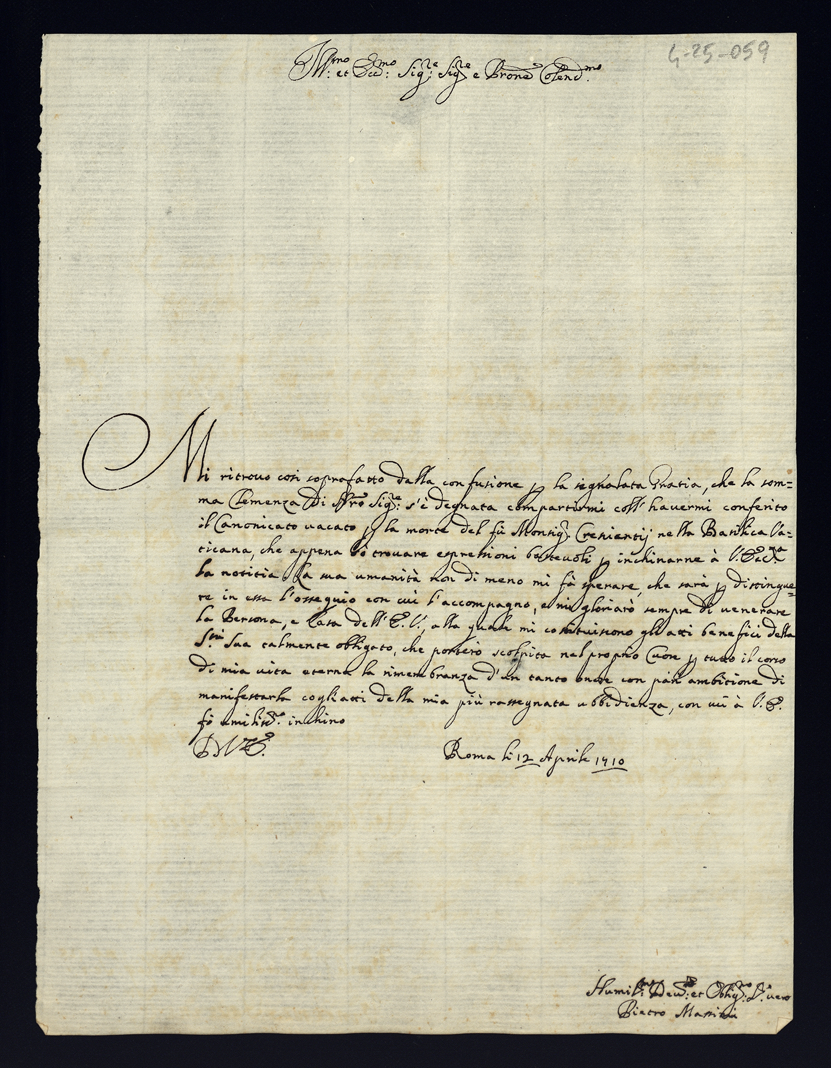 4-25-059
Ill:mo et Ecc:mo Sig:re Sig:re e Prone Colend:mo
Mi ritrovo così soprafatto dalla confusione p la segnalata Gratia, che la som=
ma Clemenza Di Nro Sig:re s'è degnata compartirmi coll' havermi conferito
il Canonicato vacato p la morte del fù Monsig:r Cresientij nella Basilica Va=
ticana, che appena sò trovare espressioni bastevoli p inchinarne à V. Ecc.za
la notitia. La sua umanità non di meno mi fà sperare, che sarà p distingue=
re in essa l'ossequio con cui l'accompagno, e mi gloriarò sempre di venerare
la Persona, e Casa dell' E. V., alla quale mi costituiscono gli atti benefici della
S.tà Sua talmente obligato, che porterò scolpita nel proprio Cuore p tutto il corso
di mia vita eterna la rimembranza d'un tanto onore con pari ambitione di
manifestarla cogli atti della mia più rassegnata ubbidienza, con cui à V. E.
fò umiliss:o inchino
D V. E.
Roma li 12 Aprile 1710
Humil:mo Dev:mo et Oblig:mo S:re vero
Pietro Massimi